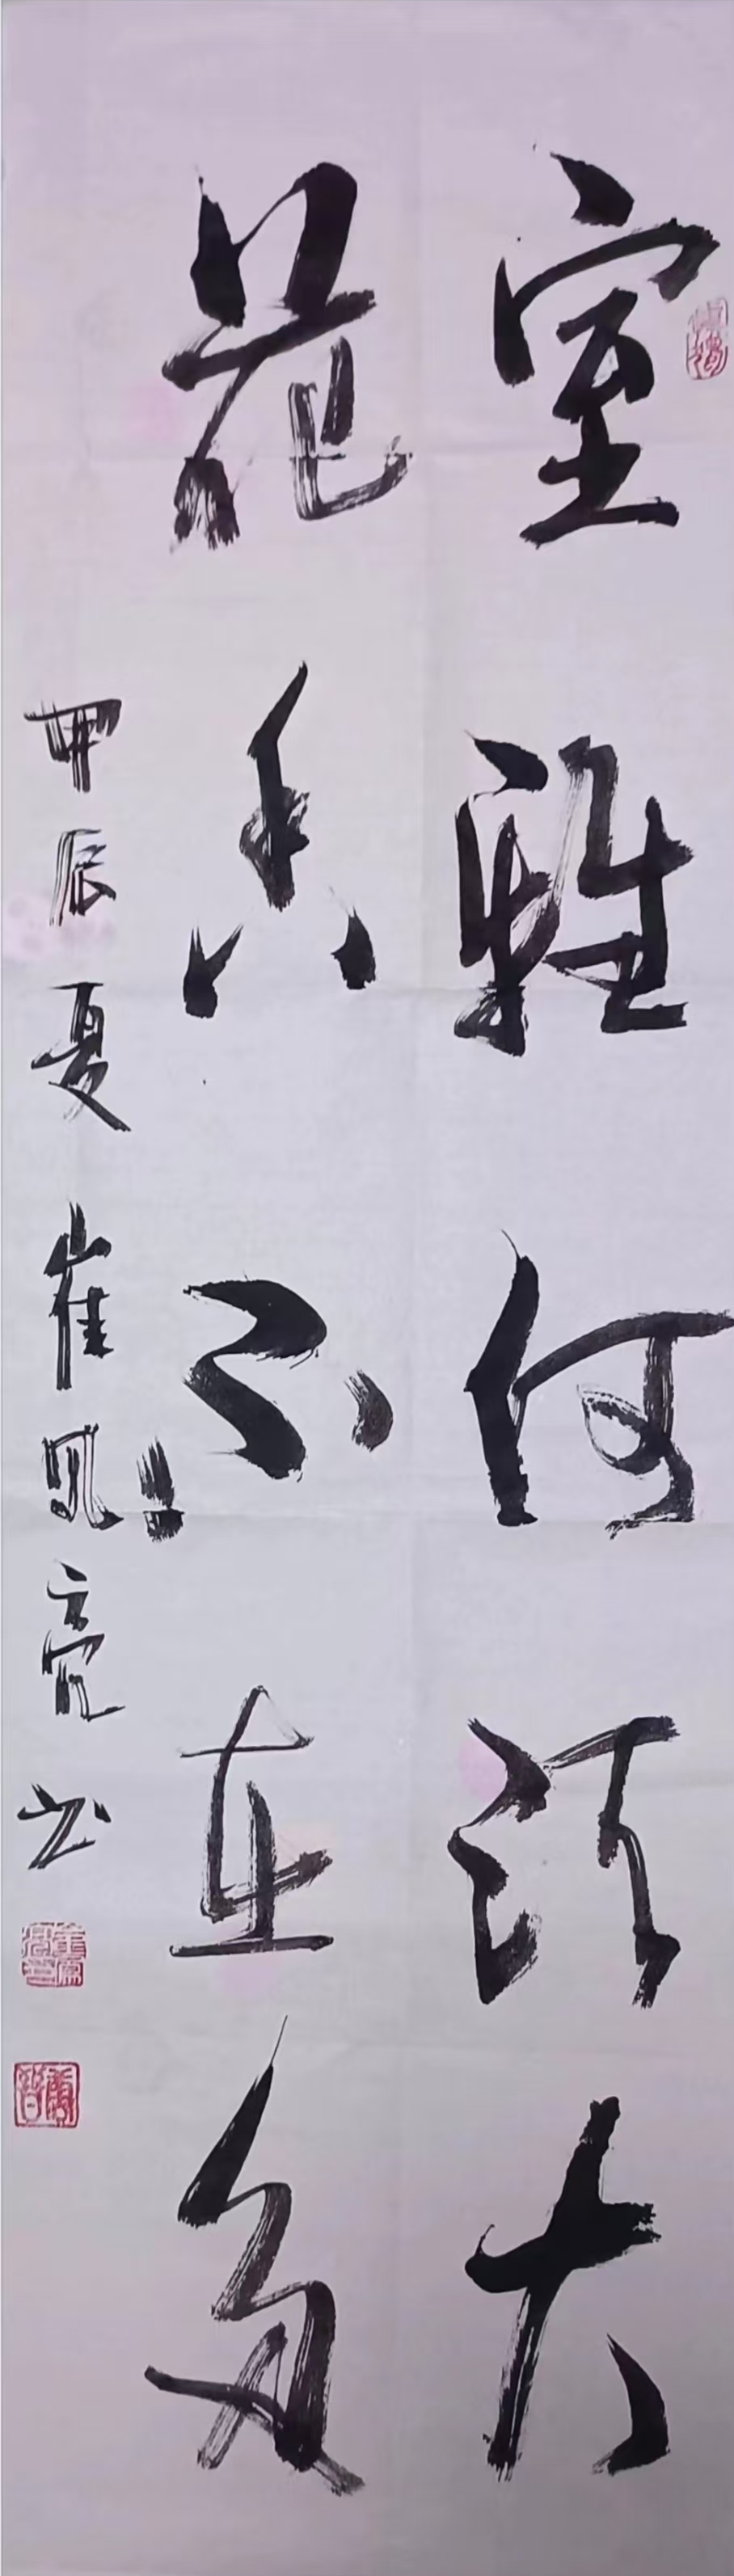 室雅何须大
花香不在多
甲辰夏崔凤亮书